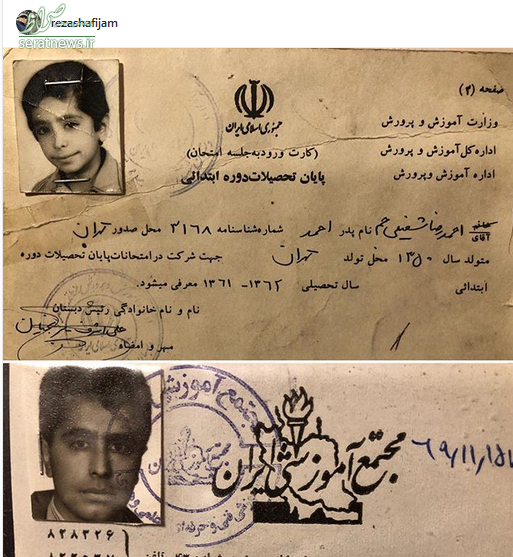 rezashafijam
seratnews.ir
صفحه (۲)
جمهوری اسلامی ایران
وزارت آموزش و پرورش
(کارت ورود به جلسه امتحان)
اداره کل آموزش و پرورش
پایان تحصیلات دوره ابتدائی
اداره آموزش و پرورش
آقای احمدرضا شفیعی جم نام پدر احمد شماره شناسنامه ۲۱۶۸ محل صدور تهران
متولد سال ۱۳۵۰ محل تولد تهران جهت شرکت در امتحانات پایان تحصیلات دوره
ابتدائی سال تحصیلی ۱۳۶۲ - ۱۳۶۱ معرفی میشود.
نام و نام خانوادگی رئیس دبستان
مهر و امضاء
مجتمع آموزشی ایران
۶۹/۱۱/۱۵
۸۲۸۳۲۶